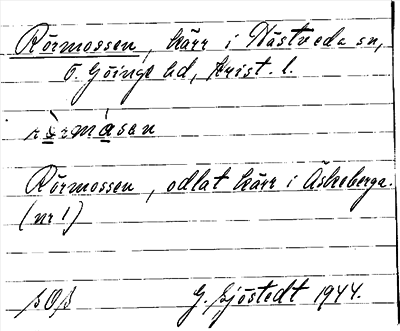 Rörmossen, kärr i Västveda sn,
Ö. Göinge hd, Krist. l.
rö̀rmåsen
Rörmossen, odlat kärr i Äskeberga.
(nr 1)
G. Sjöstedt 1944.